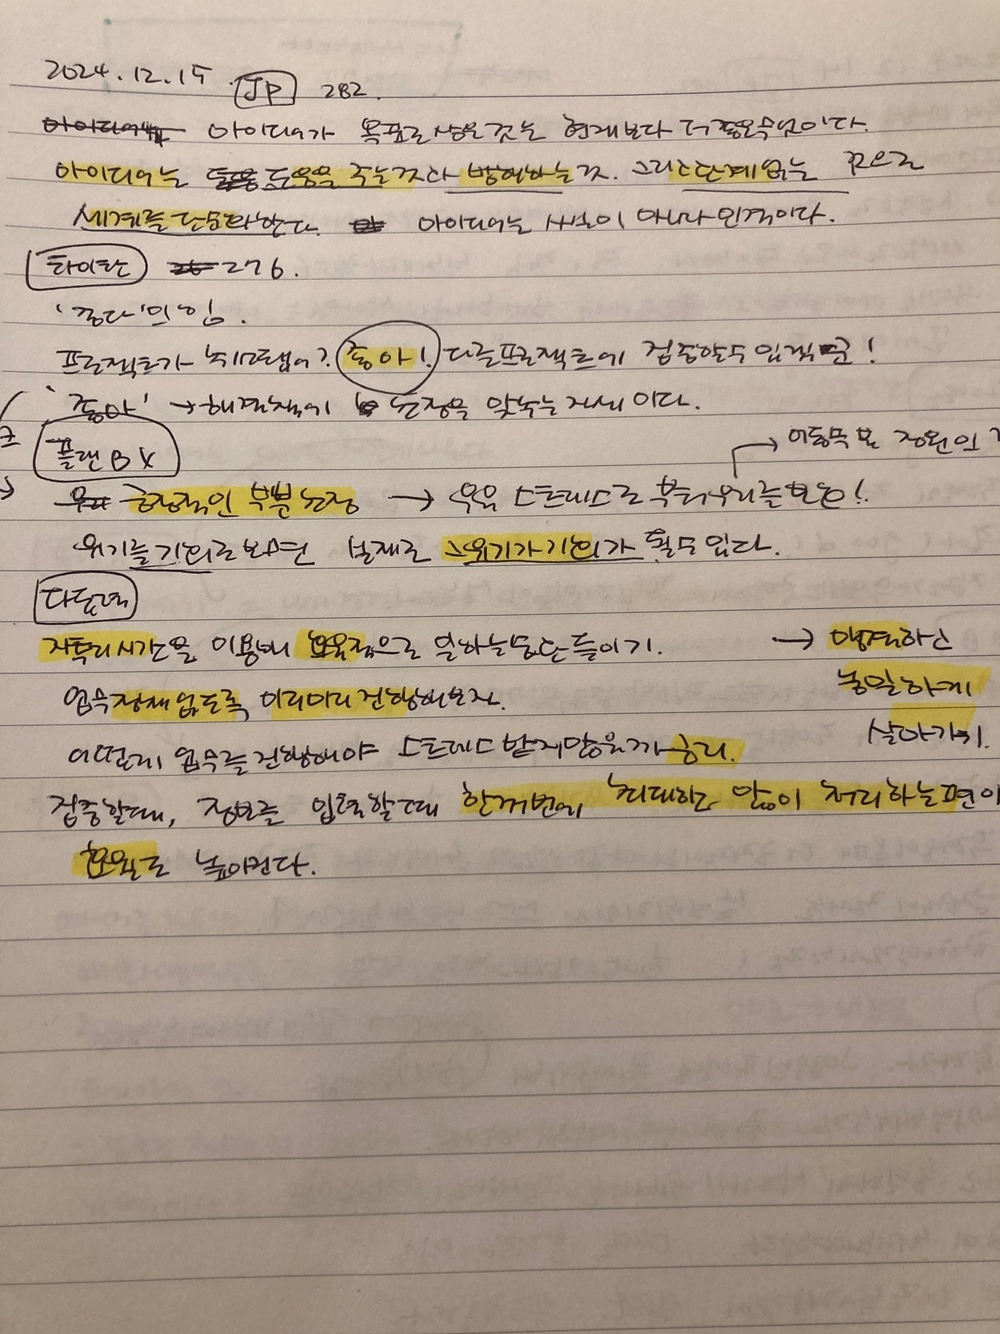 2024.12.15 JP 282.
아이디어가 목표로 삼은 것은 현재보다 더 좋은 무엇이다.
아이디어는 도움을 주는 것과 방해하는 것. 그 단계 없는 것으로
세계를 단순화한다. 아이디어는 사실이 아니라 인격이다.
타이탄 276.
'좋다'의 힘.
프로젝트가 취소됐어? 좋아! 다른 프로젝트에 집중할 수 있겠군!
'좋아' → 해결책에 초점을 맞추는 자세이다.
플랜B X → 이동욱 본 정원의
긍정적인 부분 초점 → 우울 스트레스로 부터 우리를 보호!
위기를 기회로 보면 실제로 그 위기가 기회가 될 수 있다.
다듬어
자투리 시간을 이용해 효율적으로 일하는 습관 들이기. → 행복하고
업무 잔재 없도록 미리미리 진행해보자. 충실하게
어떻게 업무를 진행해야 스트레스 받지 않을까 궁리. 살아가기.
집중할때, 정보를 입력할때 한꺼번에 최대한 많이 처리하는 편이
효율도 높아진다.